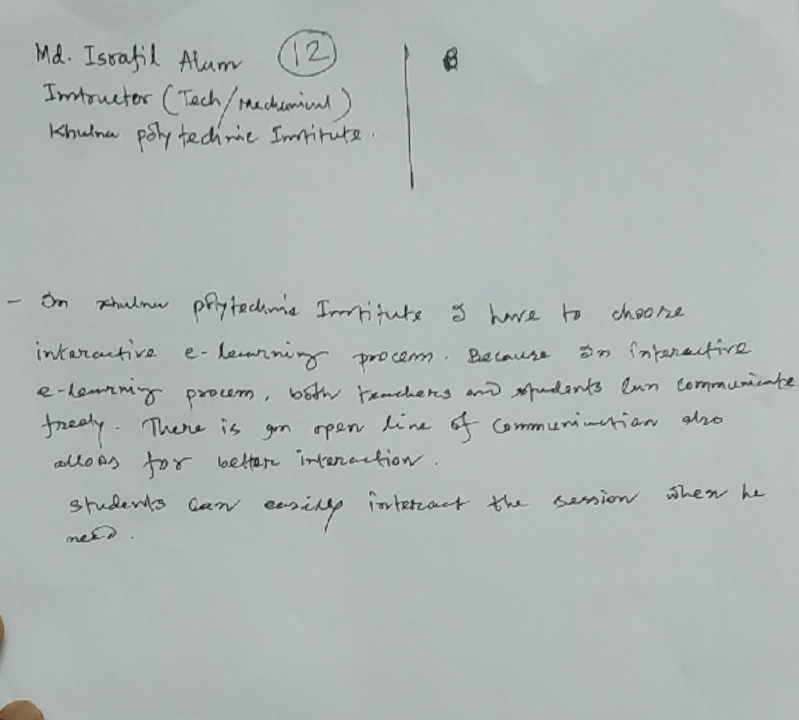 Md. Israfil Alam 12
Instructor (Tech/Mechanical)
Khulna polytechnic Institute.
- In Khulna polytechnic Institute I have to choose
interactive e-learning process. Because in interactive
e-learning process, both teachers and students can communicate
freely. There is an open line of communication also
allows for better interaction.
students can easily interact the session when he
need.